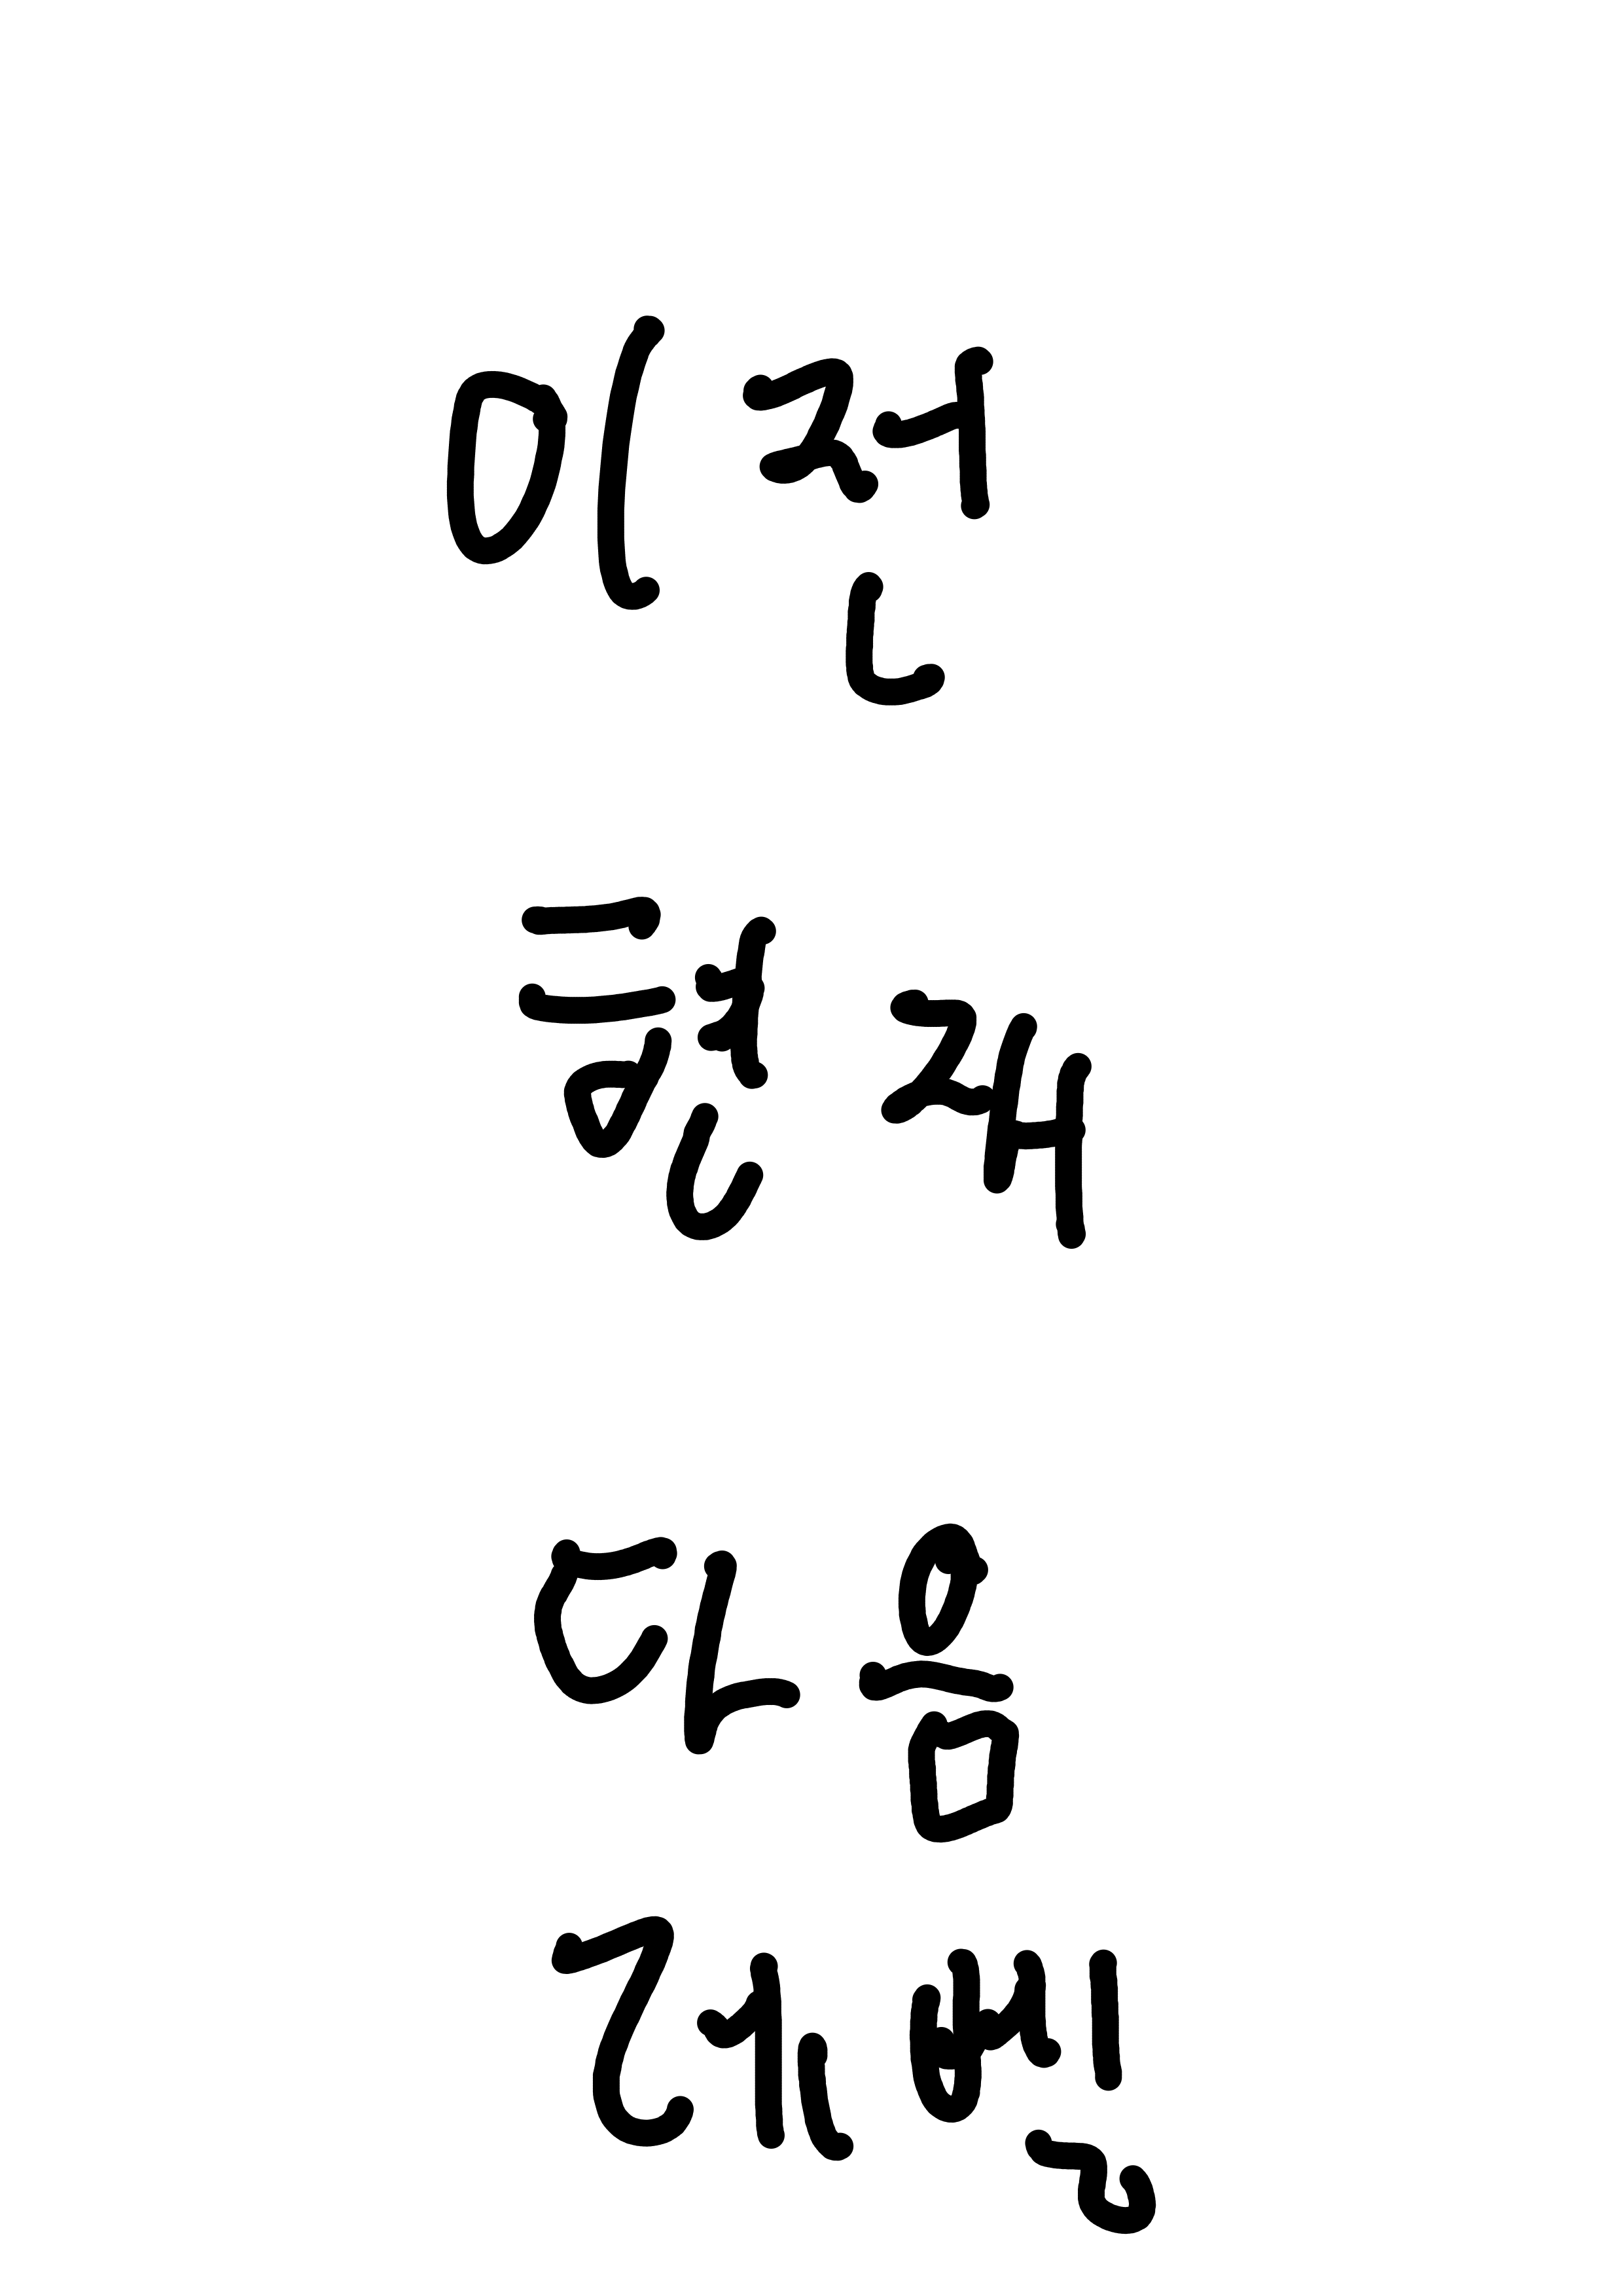 이전
현재
다음
레벨